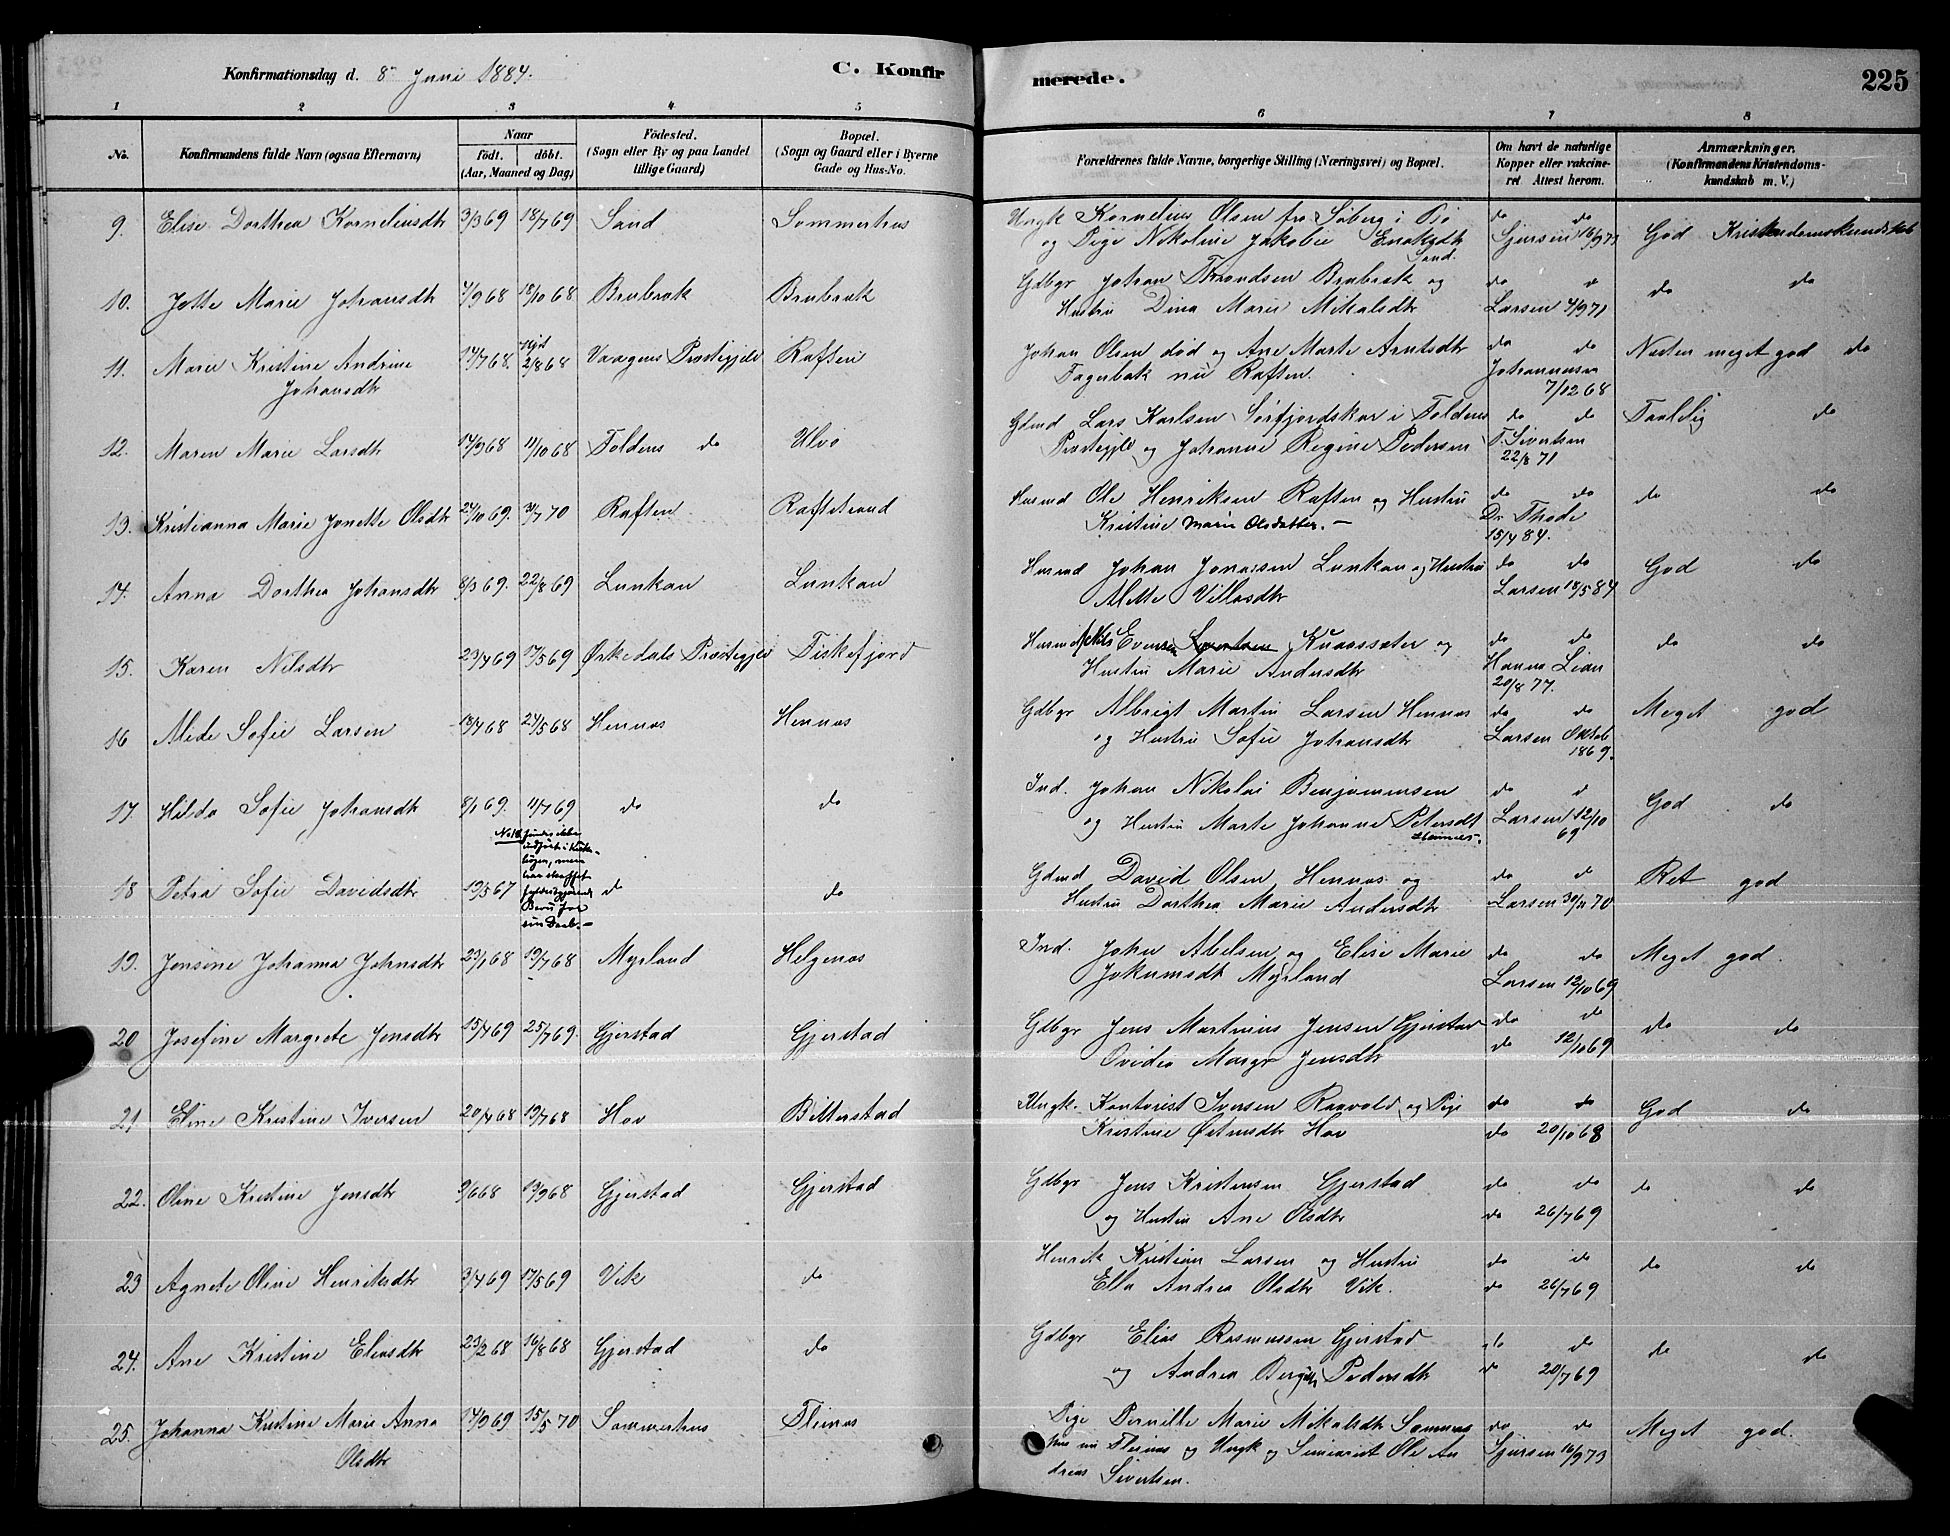 Konfirmationsdag d. 8de Juni 1884.
C. Konfirmerede.
225
1 2 3 4 5 6 7 8
No.
Konfirmandens fulde Navn (ogsaa Efternavn)
Naar
födt. döbt.
(Aar, Maaned og Dag)
Födested.
(Sogn eller By og paa Landet
tillige Gaard)
Bopæl.
(Sogn og Gaard eller i Byerne
Gade og Hus-No.
Forældrenes fulde Navne, borgerlige Stilling (Næringsvei) og Bopæl.
Om havt de naturlige
Kopper eller vakcine-
ret Attest herom.
Anmærkninger.
(Konfirmandens Kristendoms-
kundskab m. V.)
9. Elise Dorthea Korneliusdtr 3/3 69 18/7 69 Sand Sommerhus Ungk Kornelius Olsen fra Söberg i Bö do do God Kristendomskundskab
og Pige Nikoline Jakobie Enoksdtr Sjursen 16/9 73
Sand.
10. Jotte Marie Johansdtr 4/9 68 18/10 68 Brubræk Brubræk Gdbgr Johan Throndsen Brubræk og do do do do
Hustru Dina Marie Mikalsdtr Larsen 4/9 71
11. Marie Kristine Andrine 14/7 68. Hjd 2/8 68 Vaagens Præstegjeld Raften Johan Olsen död og Ane Marte Arntsdtr do do Næsten meget god do
Johansdtr Fagerbæk nu Raften. Johannesen
7/12 68
12. Maren Marie Larsdtr 14/9 68 11/10 68 Foldens do Ulvö Gdmd Lars Karlsen Sörfjordskar i Foldens do do Taalelig do
Præstegjeld og Johanne Regine Pedersen T. Sivertsen
22/8 71
13. Kristianna Marie Jonette Olsdtr 24/10 69. 3/7 70 Raften Raftstrand Husmd Ole Henriksen Raften og Hustru do do do do
Kristine Marie Olsdatter. — Dr Thode
15/4 84.
14. Anna Dorthea Johansdtr 8/3 69. 22/8 69 Lunkan Lunkan Husmd Johan Jonassen Lunkan og Hustru do do God do
Mette Villasdtr Larsen 18/5 84
15. Karen Nilsdtr 23/4 69 17/5 69 Ørkedals Præstegjeld Fiskefjord Husmd Nils Evensen Knaassæter og do do do do
Hustru Marie Andersdtr Hanna Lian
20/8 77.
16 Alede Sofie Larsen 18/4 68 24/5 68 Hennes Hennes Gdbgr Albrigt Martin Larsen Hennes do do Meget god
og Hustru Sofie Johansdtr Larsen Oktob
1869.
17. Hilda Sofie Johansdtr 8/1 69. 11/7 69 do do Ind. Johan Nikolai Benjaminsen do do God do
og Hustru Marte Johanne Petersdt Larsen 12/10
Hennes. 69
No 18 findes ikke
indfört i Kirke-
bogen, men
har skaffet
fyldestgjørende
Bevis for
sin Daab. —
18 Petra Sofie Davidsdtr 19/5 67 do do Gdmd David Olsen Hennes og do do Ret god
Hustru Dorthea Marie Andersdtr Larsen 30/11 70
19. Jensine Johanna Johnsdtr 23/1 68 19/7 68 Myrland Helgenes Ind. John Abelsen og Elise Marie do do Meget god.
Jokumsdtr Myrland Larsen 12/10 69
20 Josefine Margrete Jensdtr 15/4 69 25/7 69. Gjerstad Gjerstad Gdbgr Jens Martinus Jensen Gjerstad do do do do
Ovidea Margr Jensdtr do 12/10 69
21 Eline Kristine Iversen 20/4 68 19/7 68 Hov Bitterstad Ungk. Kontorist Iversen Raavold og Pige do do God do
Kristine Østensdtr Hov do 20/10 68
22. Oline Kristine Jensdtr 9/6 68 13/9 68 Gjerstad Gjerstad Gdbgr Jens Kristensen Gjerstad do do do do
og Hustru Ane Olsdtr do 26/7 69
23 Agnete Oline Henriksdtr 3/4 69 17/5 69 Vik do Henrik Kristian Larsen og Hustru do do do do
Ella Andrea Olsdtr Vik. do 26/7 69
24. Ane Kristine Eliasdtr 23/2 68 16/8 68 Gjerstad do Gdbgr Elias Rasmussen Gjerstad do do do do
og Andrea Bergith Pedersdtr do 20/7 69
25. Johanna Kristine Marie Anna 14/9 69 15/5 70 Sommerhus Fleines Pige Pernille Marie Mikalsdtr Sommer do do Meget god.
Olsdtr hus nu Fleines og Ungk og Seminarist Ole An Sjursen 16/9 73
dreas Sivertsen.